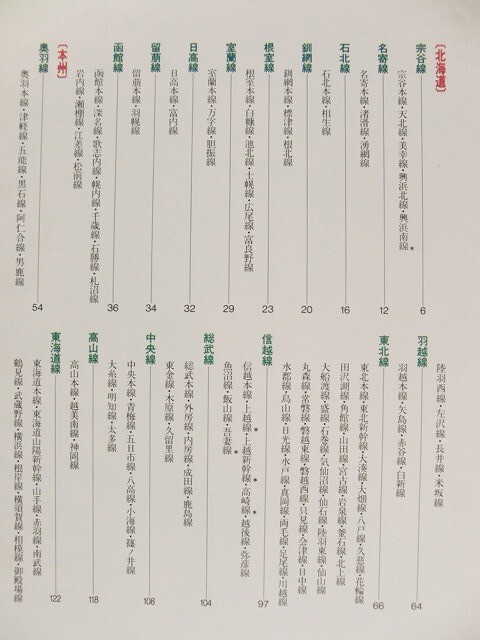 〔北海道〕
宗谷線
6
宗谷本線・天北線・美幸線・興浜北線・興浜南線*
名寄線
9
名寄本線・渚滑線・湧網線
石北線
12
石北本線・相生線
釧網線
16
釧網本線・標津線・根北線
根室線
20
根室本線・白糠線・池北線・士幌線・広尾線・富良野線
室蘭線
23
室蘭本線・万字線・胆振線
日高線
29
日高本線・富内線
留萌線
32
留萌本線・羽幌線
函館線
34
函館本線・深名線・歌志内線・幌内線・千歳線・石勝線・札沼線
岩内線・瀬棚線・江差線・松前線
36
〔本州〕
奥羽線
54
奥羽本線・津軽線・五能線・黒石線・阿仁合線・男鹿線
陸羽西線・左沢線・長井線・米坂線
羽越線
64
羽越本線・矢島線・赤谷線・白新線
東北線
66
東北本線・東北新幹線・大湊線・大畑線・八戸線・久慈線・花輪線
田沢湖線・角館線・山田線・宮古線・岩泉線・釜石線・北上線
大船渡線・盛線・石巻線・気仙沼線・仙石線・陸羽東線・仙山線
丸森線・常磐線・磐越東線・磐越西線・只見線・会津線・日中線
水郡線・烏山線・日光線・水戸線・真岡線・両毛線・足尾線・川越線
信越線
97
信越本線・上越線*・上越新幹線*・高崎線*・越後線・弥彦線
魚沼線・飯山線・吾妻線*
総武線
104
総武本線・外房線・内房線・成田線・鹿島線
東金線・木原線・久留里線
中央線
108
中央本線・青梅線・五日市線・八高線・小海線・篠ノ井線
大糸線・明知線・太多線
高山線
118
高山本線・越美南線・神岡線
東海道線
122
東海道本線・東海道山陽新幹線・山手線・赤羽線・南武線
鶴見線・武蔵野線・横浜線・根岸線・横須賀線・相模線・御殿場線